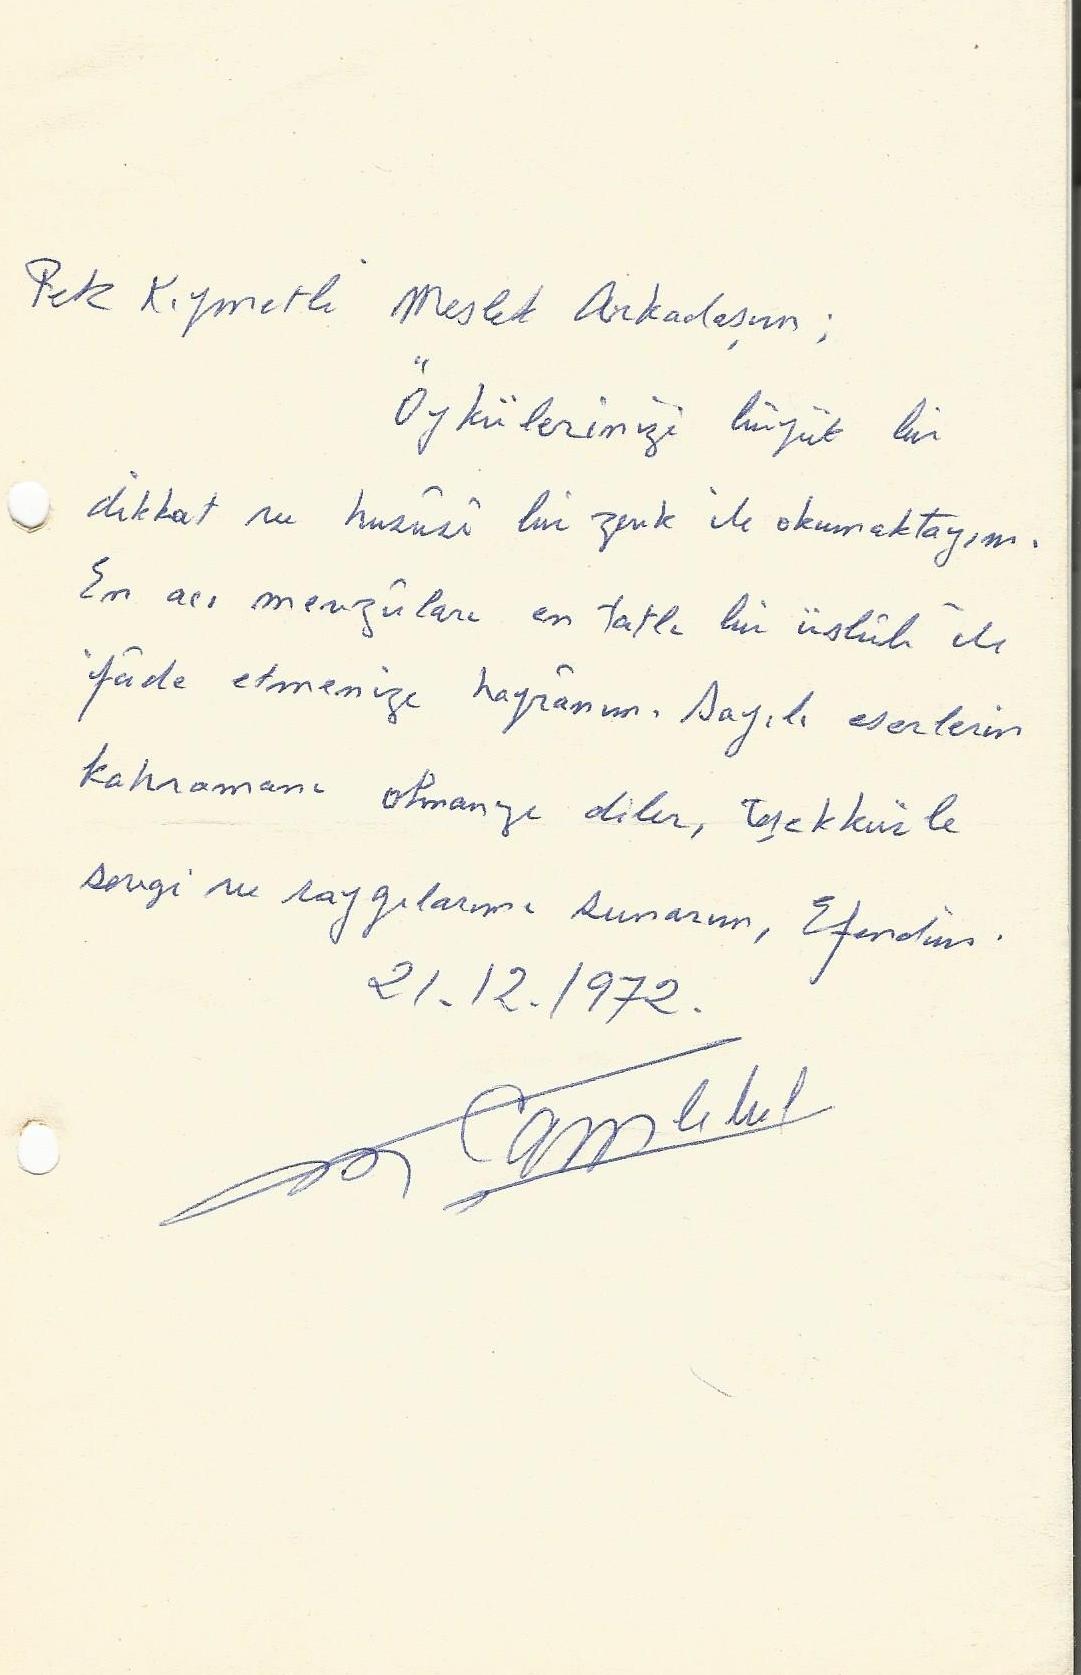 Pek Kıymetli Meslek Arkadaşım;
Öykülerinizi büyük bir
dikkat ve husûsî bir zevk ile okumaktayım.
En acı mevzûları en tatlı bir üslûb ile
ifâde etmenize hayrânım. Sayılı eserlerin
kahramanı olmanızı diler, teşekkürle
sevgi ve saygılarımı sunarım, Efendim.
21.12.1972.
Çamlıbel